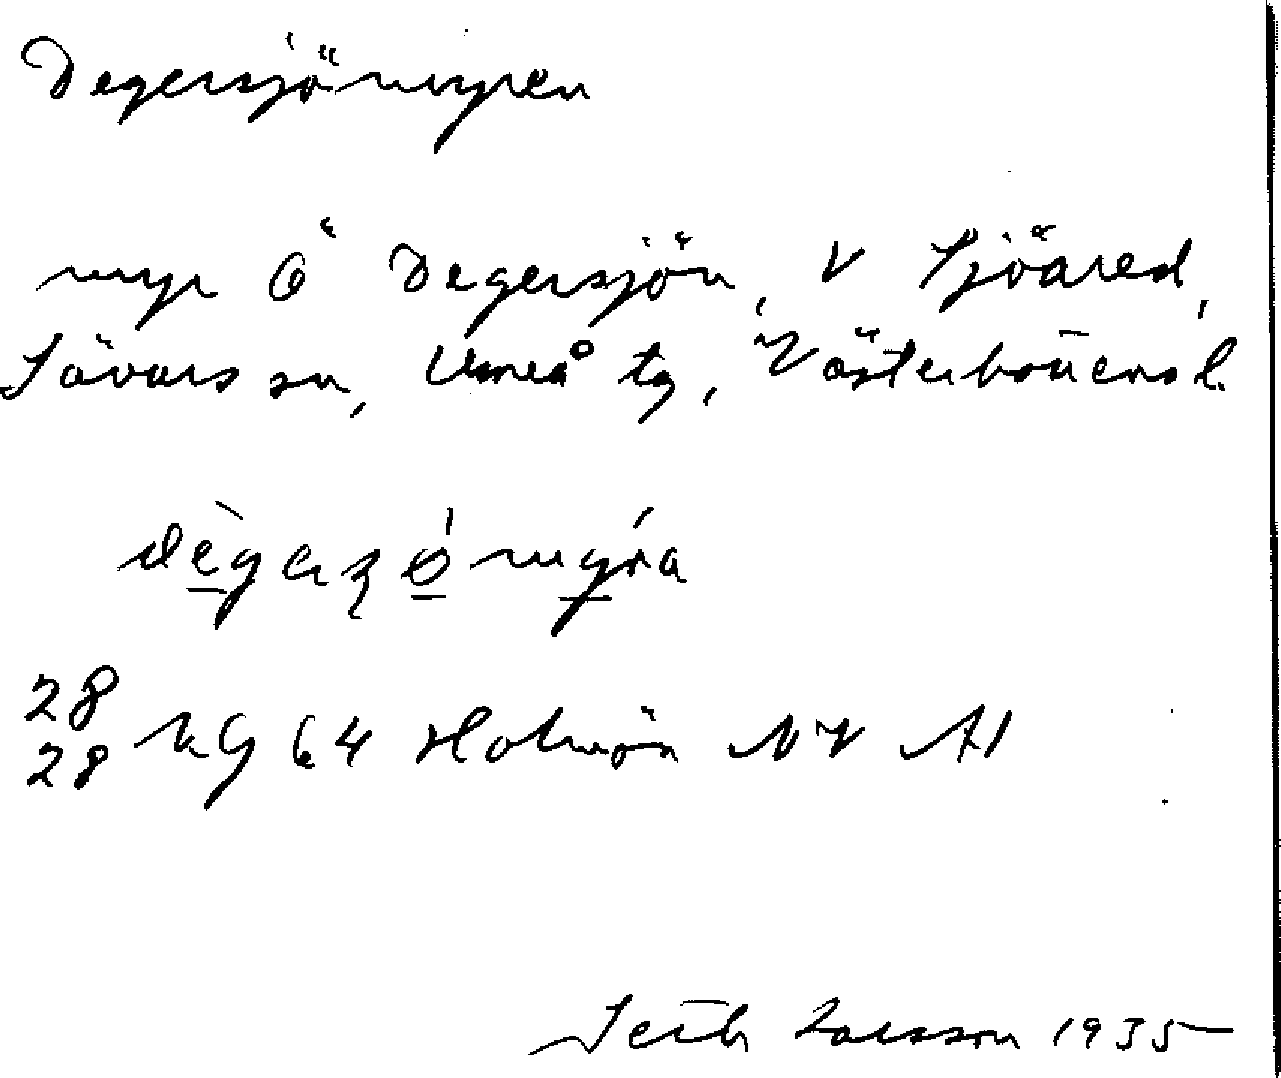 Degersjömyren
myr Ö Degersjön, V Sjöared,
Sävars sn, Umeå tg, Västerbottens l.
28
28 KG 64 Holmön NV A1
Seth Larsson 1935